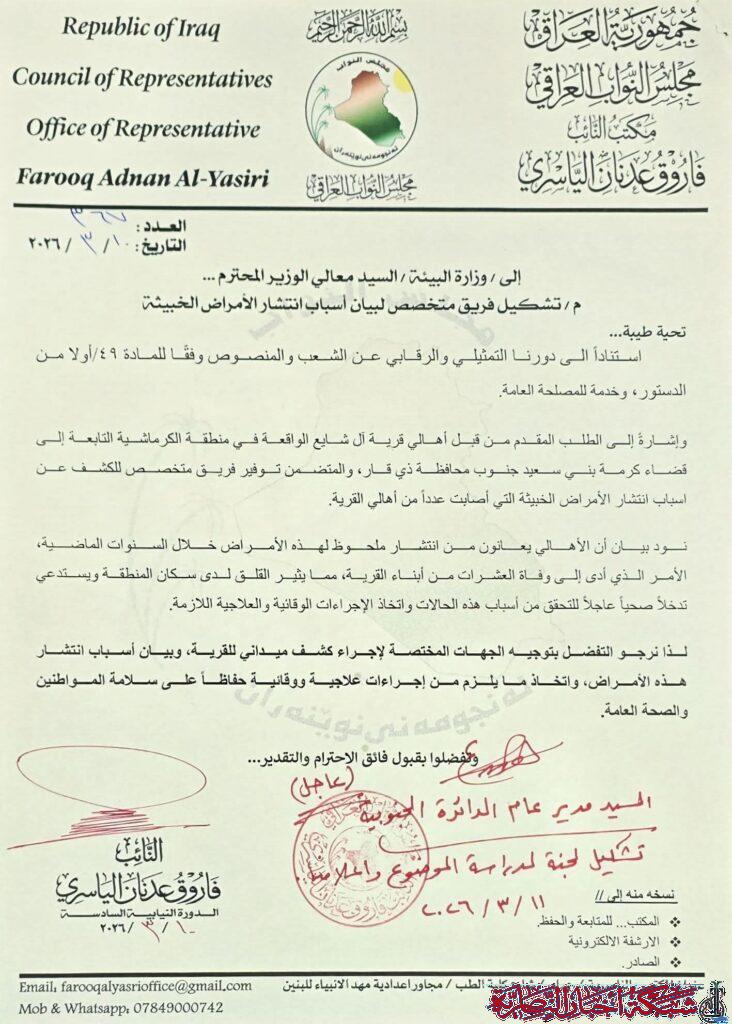 Republic of Iraq
Council of Representatives
Office of Representative
Farooq Adnan Al-Yasiri
بسم الله الرحمن الرحيم
مجلس النواب
ئه نجومه نى نوێنه ران
مجلس النواب العراقي
جمهورية العراق
مجلس النواب العراقي
مكتب النائب
فاروق عدنان الياسري
العدد: ٣٦٧
التاريخ: ١٠ / ٣ / ٢٠٢٦
إلى / وزارة البيئة / السيد معالي الوزير المحترم ...
م / تشكيل فريق متخصص لبيان أسباب انتشار الأمراض الخبيثة
تحية طيبة...
استناداً الى دورنا التمثيلي والرقابي عن الشعب والمنصوص وفقًا للمادة ٤٩/أولا من
الدستور، وخدمة للمصلحة العامة.
وإشارةً إلى الطلب المقدم من قبل أهالي قرية آل شايع الواقعة في منطقة الكرماشية التابعة إلى
قضاء كرمة بني سعيد جنوب محافظة ذي قار، والمتضمن توفير فريق متخصص للكشف عن
اسباب انتشار الأمراض الخبيثة التي أصابت عدداً من أهالي القرية.
نود بيان أن الأهالي يعانون من انتشار ملحوظ لهذه الأمراض خلال السنوات الماضية،
الأمر الذي أدى إلى وفاة العشرات من أبناء القرية، مما يثير القلق لدى سكان المنطقة ويستدعي
تدخلاً صحياً عاجلاً للتحقق من أسباب هذه الحالات واتخاذ الإجراءات الوقائية والعلاجية اللازمة.
لذا نرجو التفضل بتوجيه الجهات المختصة لإجراء كشف ميداني للقرية، وبيان أسباب انتشار
هذه الأمراض، واتخاذ ما يلزم من إجراءات علاجية ووقائية حفاظاً على سلامة المواطنين
والصحة العامة.
وتفضلوا بقبول فائق الإحترام والتقدير...
(عاجل)
السيد مدير عام الدائرة الجنوبية
تشكيل لجنة لدراسة الموضوع
٢٠٢٦ / ٣ / ١١
النائب
فاروق عدنان الياسري
الدورة النيابية السادسة
١٠ / ٣ / ٢٠٢٦
نسخه منه إلى //
المكتب... للمتابعة والحفظ.
الارشفة الالكترونية
الصادر.
Email: farooqalyasrioffice@gmail.com
Mob & Whatsapp: 07849000742
الطب / مجاور اعدادية مهد الانبياء للبنين
شبكة اخبار الناصرية